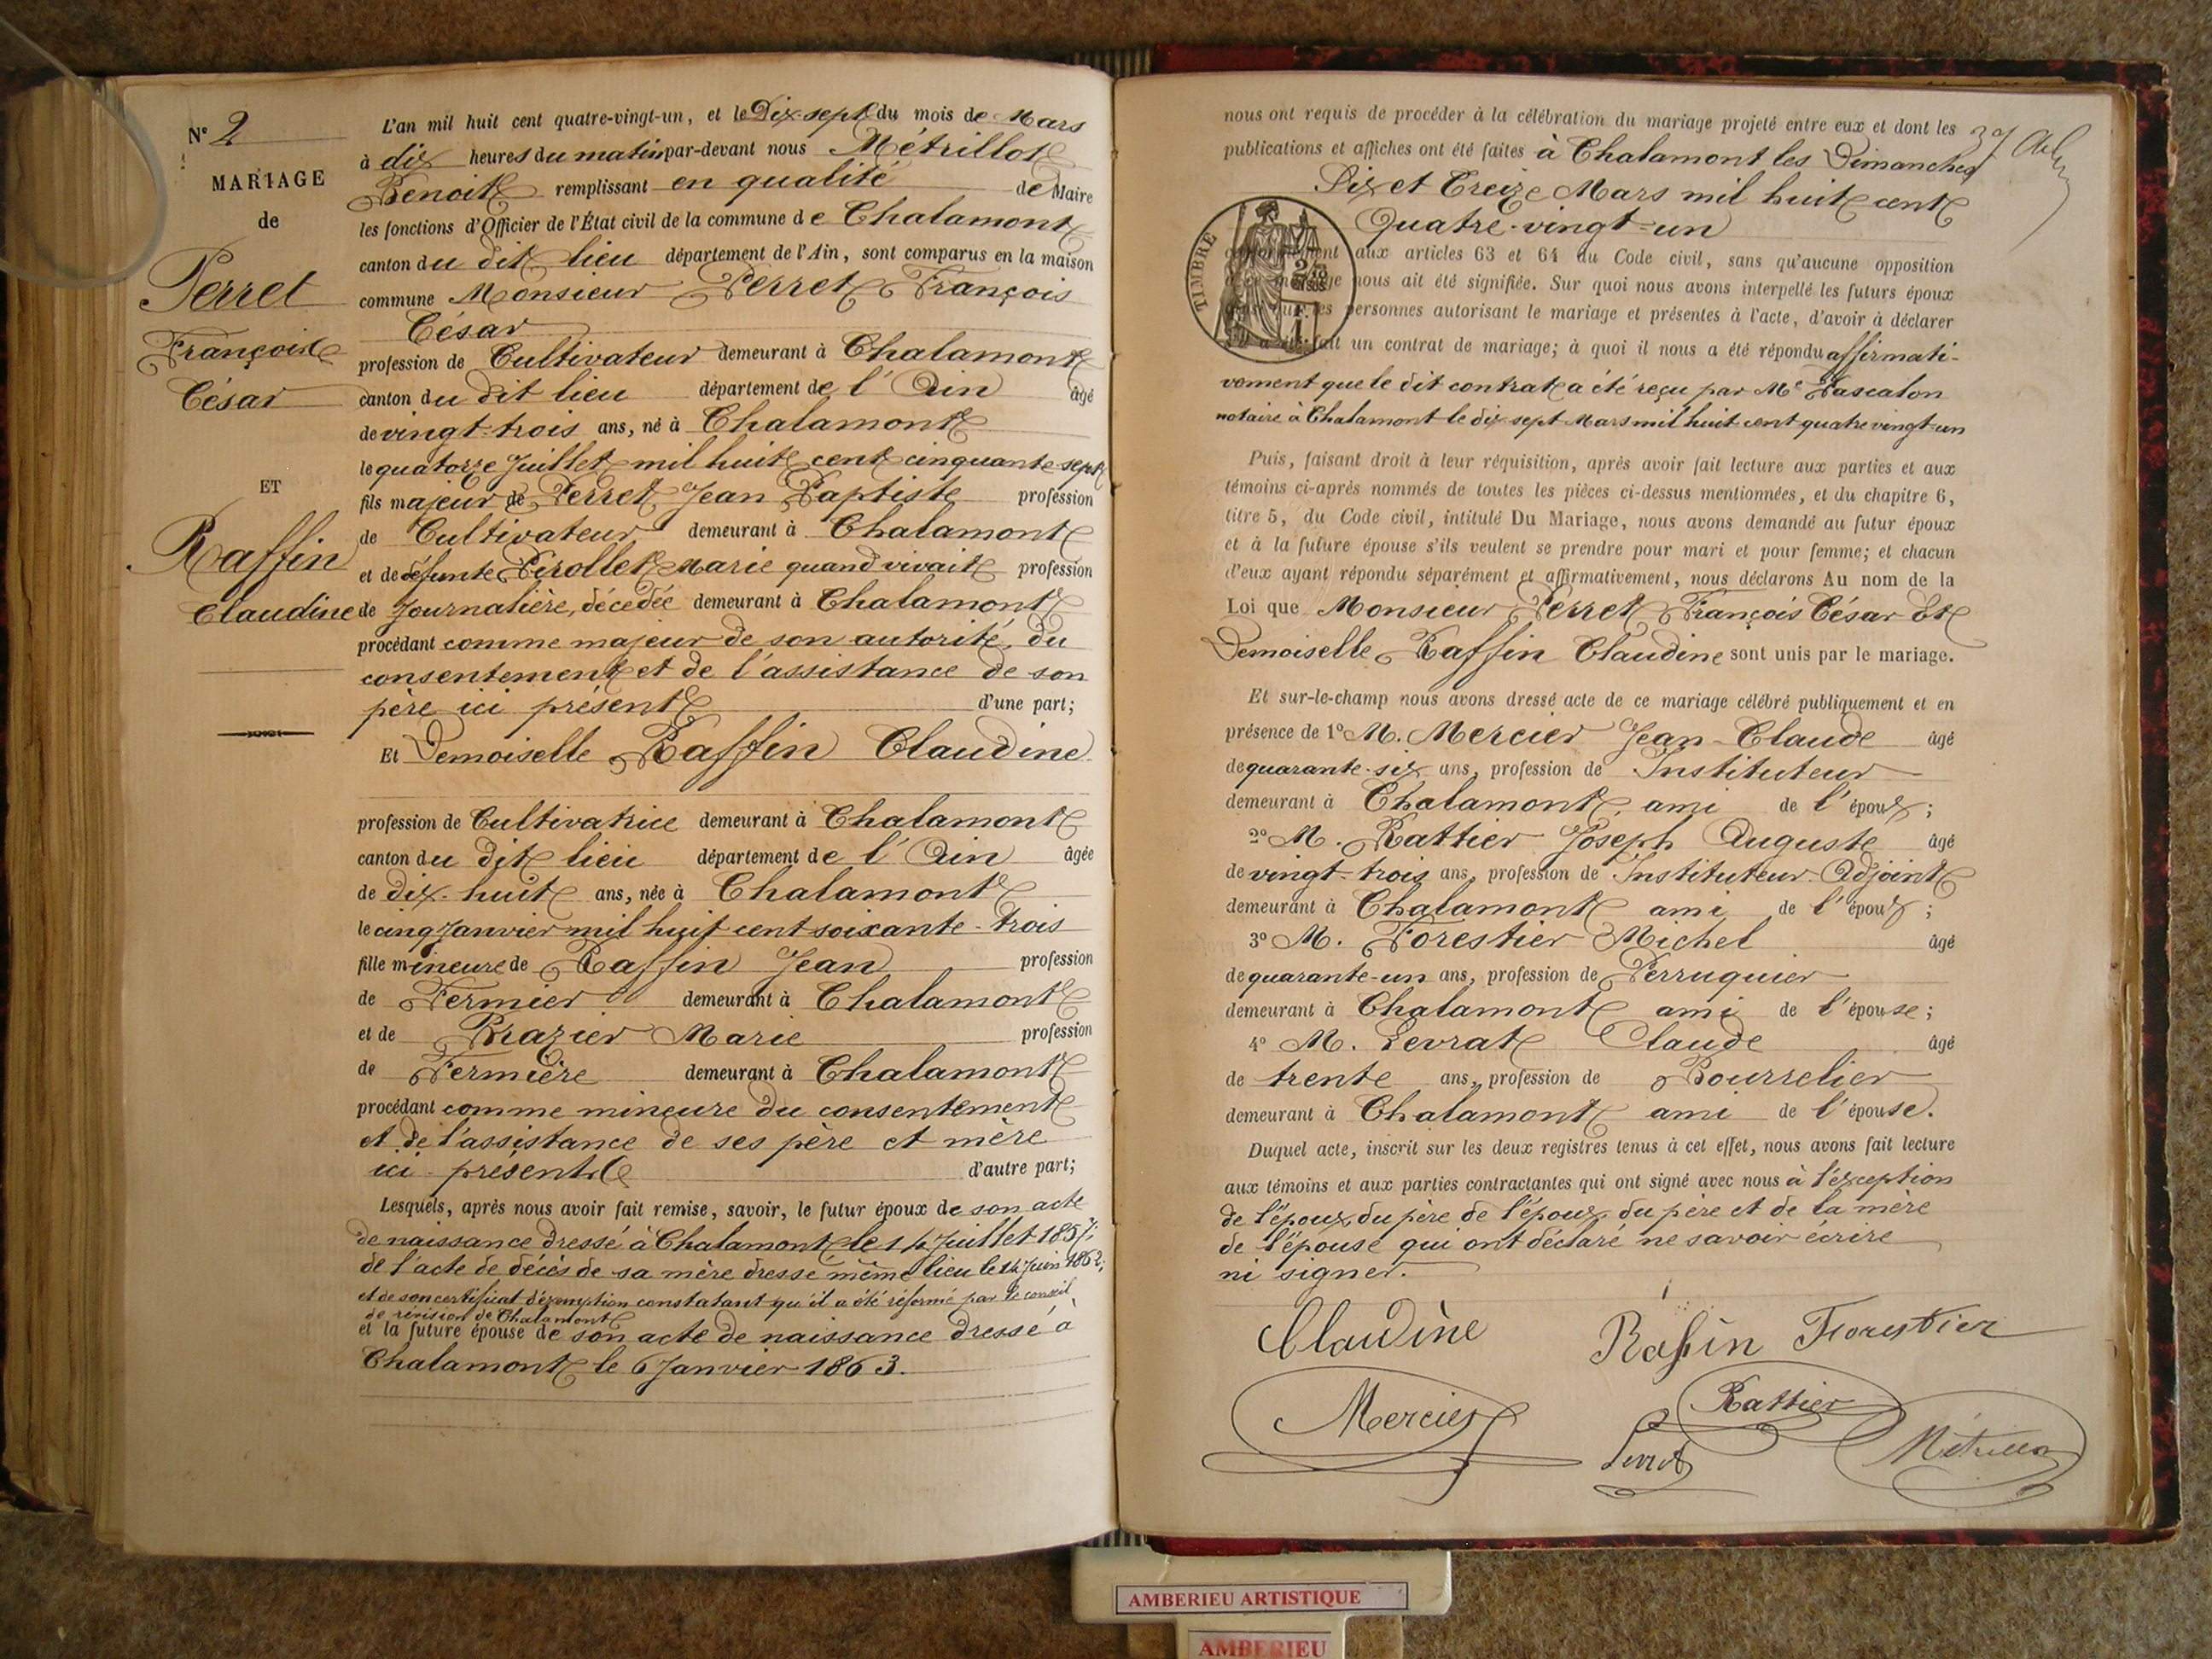 N° 2
MARIAGE
de
Perret
François
César
ET
Raffin
Claudine
L'an mil huit cent quatre-vingt-un, et le Dix-sept du mois de Mars
à dix heures du matin par-devant nous Métrillot
Benoit remplissant en qualité de Maire
les fonctions d'Officier de l'État civil de la commune de Chalamont
canton du dit lieu département de l'Ain, sont comparus en la maison
commune Monsieur Perret François
César
profession de Cultivateur demeurant à Chalamont
canton du dit lieu département de l'Ain âgé
de vingt-trois ans, né à Chalamont
le quatorze Juillet mil huit cent cinquante-sept
fils majeur de Perret Jean Baptiste profession
de Cultivateur demeurant à Chalamont
et de défunte Pirollet Marie quand vivait profession
de Journalière, décédée demeurant à Chalamont
procédant comme majeur de son autorité, du
consentement et de l'assistance de son
père ici présent d'une part;
Et Demoiselle Raffin Claudine
profession de Cultivatrice demeurant à Chalamont
canton du dit lieu département de l'Ain âgée
de dix-huit ans, née à Chalamont
le cinq Janvier mil huit cent soixante-trois
fille mineure de Raffin Jean profession
de Fermier demeurant à Chalamont
et de Brazier Marie profession
de Fermière demeurant à Chalamont
procédant comme mineure du consentement
et de l'assistance de ses père et mère
ici présents d'autre part;
Lesquels, après nous avoir fait remise, savoir, le futur époux de son acte
de naissance dressé à Chalamont le 14 Juillet 1857;
de l'acte de décès de sa mère dressé même lieu le 14 Juin 1862;
et de son certificat d'éxemption constatant qu'il a été réformé par le conseil
de révision de Chalamont
et la future épouse de son acte de naissance dressé à
Chalamont le 6 Janvier 1863.
nous ont requis de procéder à la célébration du mariage projeté entre eux et dont les
publications et affiches ont été faites à Chalamont les Dimanches
Six et Treize Mars mil huit cent
Quatre-vingt-un
TIMBRE
aux articles 63 et 64 du Code civil, sans qu'aucune opposition
nous ait été signifiée. Sur quoi nous avons interpellé les futurs époux
personnes autorisant le mariage et présentes à l'acte, d'avoir à déclarer
fait un contrat de mariage; à quoi il nous a été répondu affirmati-
vement que le dit contrat a été reçu par Me Pascalon
notaire à Chalamont le dix sept Mars mil huit cent quatre vingt-un
Puis, faisant droit à leur réquisition, après avoir fait lecture aux parties et aux
témoins ci-après nommés de toutes les pièces ci-dessus mentionnées, et du chapitre 6,
titre 5, du Code civil, intitulé Du Mariage, nous avons demandé au futur époux
et à la future épouse s'ils veulent se prendre pour mari et pour femme; et chacun
d'eux ayant répondu séparément et affirmativement, nous déclarons Au nom de la
Loi que Monsieur Perret François César Et
Demoiselle Raffin Claudine sont unis par le mariage.
Et sur-le-champ nous avons dressé acte de ce mariage célébré publiquement et en
présence de 1° M. Mercier Jean-Claude âgé
de quarante-six ans, profession de Instituteur
demeurant à Chalamont ami de l'époux;
2° M. Rattier Joseph Auguste âgé
de vingt-trois ans, profession de Instituteur-Adjoint
demeurant à Chalamont ami de l'époux;
3° M. Forestier Michel âgé
de quarante-un ans, profession de Perruquier
demeurant à Chalamont ami de l'épouse;
4° M. Levrat Claude âgé
de trente ans, profession de Bourrelier
demeurant à Chalamont ami de l'épouse.
Duquel acte, inscrit sur les deux registres tenus à cet effet, nous avons fait lecture
aux témoins et aux parties contractantes qui ont signé avec nous à l'éxception
de l'époux, du père de l'époux, du père et de la mère
de l'épouse qui ont déclaré ne savoir écrire
ni signer.
Claudine Rafin Forestier
Mercier Rattier
AMBERIEU ARTISTIQUE
AMBERIEU